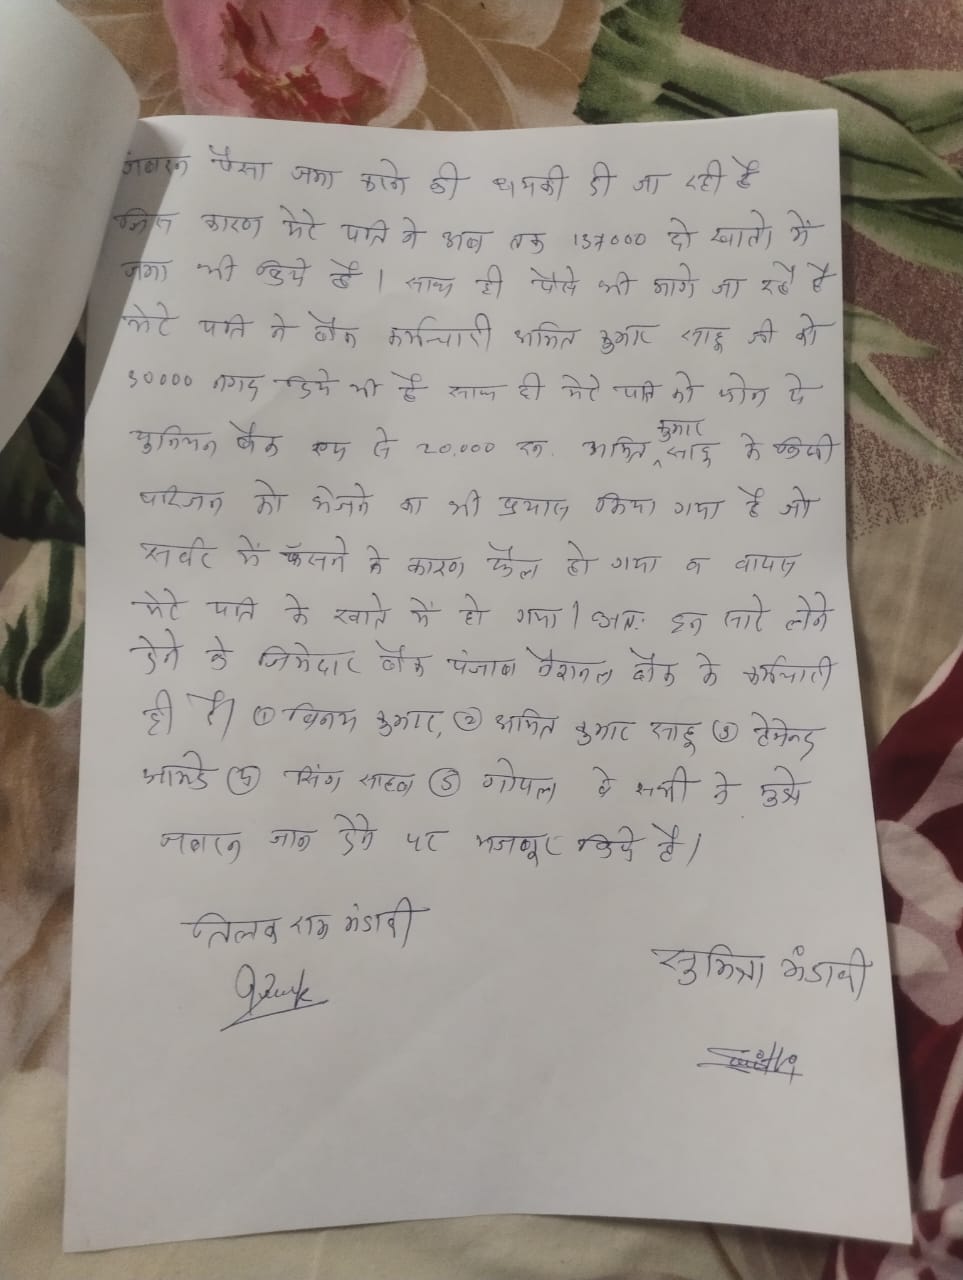 जबरन पैसा जमा करने की धमकी दी जा रही है
जिस कारण मेरे पति ने अब तक 137000 दो खातो में
जमा भी किये है । साथ ही पैसे भी मांगे जा रहे है
मेरे पति ने बैंक कर्मचारी अमित कुमार साहू जी को
30000 नगद दिये भी है साथ ही मेरे पति को फोन पे
युनियन बैंक से 20,000 रु. अमित कुमार साहू के किसी
परिजन को भेजने का भी प्रयास किया गया है जो
सर्वर में फॅसने के कारण फैल हो गया व वापस
मेरे पति के खाते में हो गया । अतः इन सारे लेने
देने के जिमेदार बैंक पंजाब नैशनल बैंक के कर्मचारी
ही है । ① विनय कुमार, ② अमित कुमार साहू ③ हेमेन्द्र
④ सिंग साहब ⑤ गोपल ये सभी ने मुझे
जबरन जान देने पर मजबूर किये है ।
तिलक राम मंडावी
सुमित्रा मंडावी